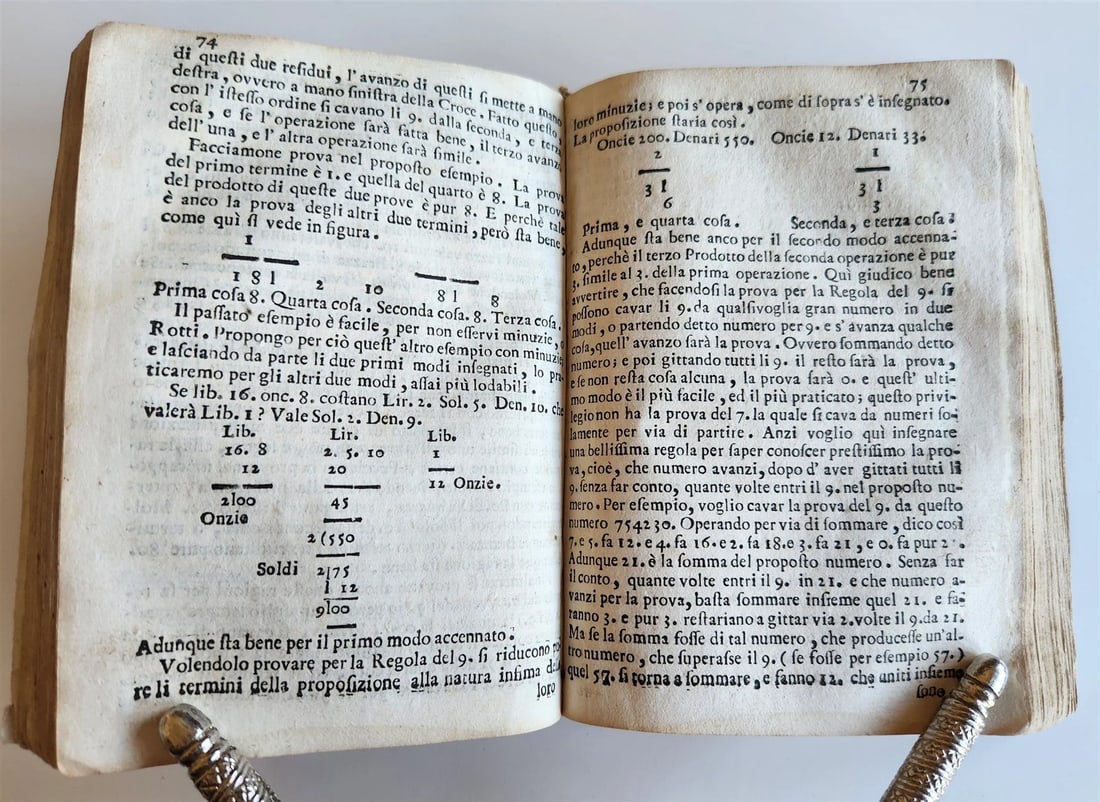 74
di questi due residui, l'avanzo di questi si mette a mano
destra, ovvero a mano sinistra della Croce. Fatto questo,
con l'istesso ordine si cavano li 9. dalla seconda, e terza
cosa, e se l'operazione sarà fatta bene, il terzo avanzo
dell'una, e l'altra operazione sarà simile.
Facciamone prova nel proposto esempio. La prova
del primo termine è 1. e quella del quarto è 8. La prova
del prodotto di queste due prove è pur 8. E perchè tale
è anco la prova degli altri due termini, però sta bene,
come quì si vede in figura.
1
1 8 1 2 10 8 1 8
Prima cosa 8. Quarta cosa. Seconda cosa. 8. Terza cosa.
Il passato esempio è facile, per non esservi minuzie, o
Rotti. Propongo per ciò quest'altro esempio con minuzie,
e lasciando da parte li due primi modi insegnati, lo pra-
ticaremo per gli altri due modi, assai più lodabili.
Se lib. 16. onc. 8. costano Lir. 2. Sol. 5. Den. 10. che
valerà Lib. 1? Vale Sol. 2. Den. 9.
Lib. Lir. Lib.
16. 8 2. 5. 10 1
12 20
12 Onzie.
2|00 45
Onzie
2(550
Soldi 2|75
1 12
9|00
Adunque sta bene per il primo modo accennato.
Volendolo provare per la Regola del 9. si riducono
re li termini della proposizione alla natura infima
loro
75
loro minuzie; e poi s'opera, come di sopra s'è insegnato.
La proposizione staria così.
Oncie 200. Denari 550. Oncie 12. Denari 33.
2 1
3 1 3 1
6 3
Prima, e quarta cosa. Seconda, e terza cosa.
Adunque sta bene anco per il secondo modo accenna-
to, perchè il terzo Prodotto della seconda operazione è pur
3. simile al 3. della prima operazione. Quì giudico bene
avvertire, che facendosi la prova per la Regola del 9. si
possono cavar li 9. da qualsivoglia gran numero in due
modi, o partendo detto numero per 9. e s'avanza qualche
cosa, quell'avanzo sarà la prova. Ovvero sommando detto
numero; e poi gittando tutti li 9. il resto sarà la prova,
e se non resta cosa alcuna, la prova sarà 0. e quest'ulti-
mo modo è il più facile, ed il più praticato; questo privi-
legio non ha la prova del 7. la quale si cava da numeri so-
lamente per via di partire. Anzi voglio quì insegnare
una bellissima regola per saper conoscer prestissimo la pro-
va, cioè, che numero avanzi, dopo d'aver gittati tutti li
9. senza far conto, quante volte entri il 9. nel proposto nu-
mero. Per esempio, voglio cavar la prova del 9. da questo
numero 754230. Operando per via di sommare, dico così
7. e 5. fa 12. e 4. fa 16. e 2. fa 18. e 3. fa 21, e 0. fa pur 2 .
Adunque 21. è la somma del proposto numero. Senza far
il conto, quante volte entri il 9. in 21. e che numero a-
vanzi per la prova, basta sommare insieme quel 21. e fa-
ranno 3. e pur 3. restariano a gittar via 2. volte il 9. da 21.
Ma se la somma fosse di tal numero, che producesse un'al-
tro numero, che superasse il 9. (se fosse per esempio 57.)
quel 57. si torna a sommare, e fanno 12. che uniti insieme